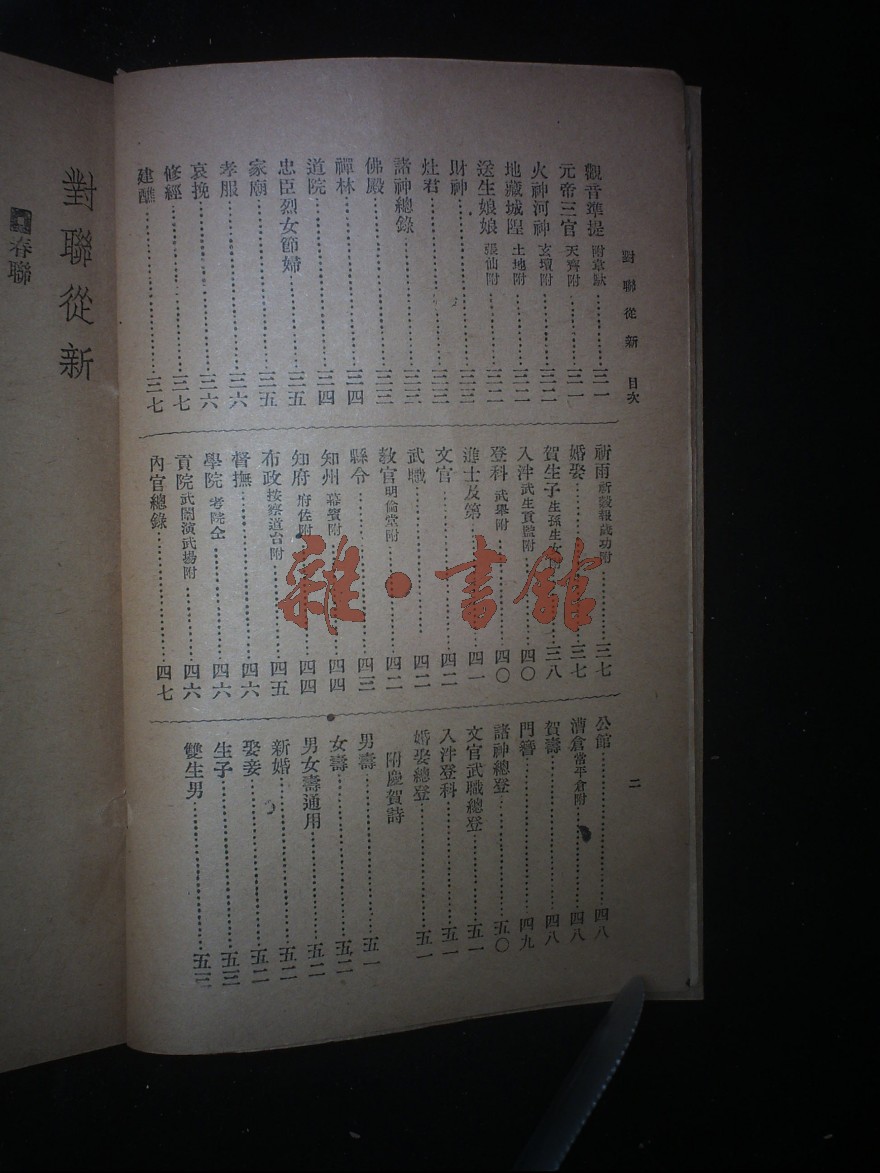 對聯從新　目次
二
觀音準提 附韋馱……三一
元帝三官 天齊附……三一
火神河神 玄壇附……三二
地藏城隍 土地附……三二
送生娘娘 張仙附……三二
財神……三三
灶君……三三
諸神總錄……三三
佛殿……三三
禪林……三四
道院……三四
忠臣烈女節婦……三五
家廟……三五
孝服……三六
哀挽……三六
修經……三七
建醮……三七
祈雨 祈穀報歲功附……三七
婚娶……三七
賀生子 生孫生女……三八
入泮 武生貢監附……四〇
登科 武舉附……四〇
進士及第……四一
文官……四二
武職……四二
教官 明倫堂附……四二
縣令……四三
知州 幕賓附……四四
知府 府佐附……四四
布政 按察道台附……四五
督撫……四六
學院 考院仝……四六
貢院 武闈演武場附……四六
內官總錄……四七
公館……四八
漕倉 常平倉附……四八
賀壽……四八
門簪……四九
諸神總登……五〇
文官武職總登……五一
入泮登科……五一
婚娶總登……五一
附慶賀詩
男壽……五一
女壽……五二
男女壽通用……五二
新婚……五二
娶妾……五二
生子……五三
雙生男……五三
對聯從新
春聯
雜·書館